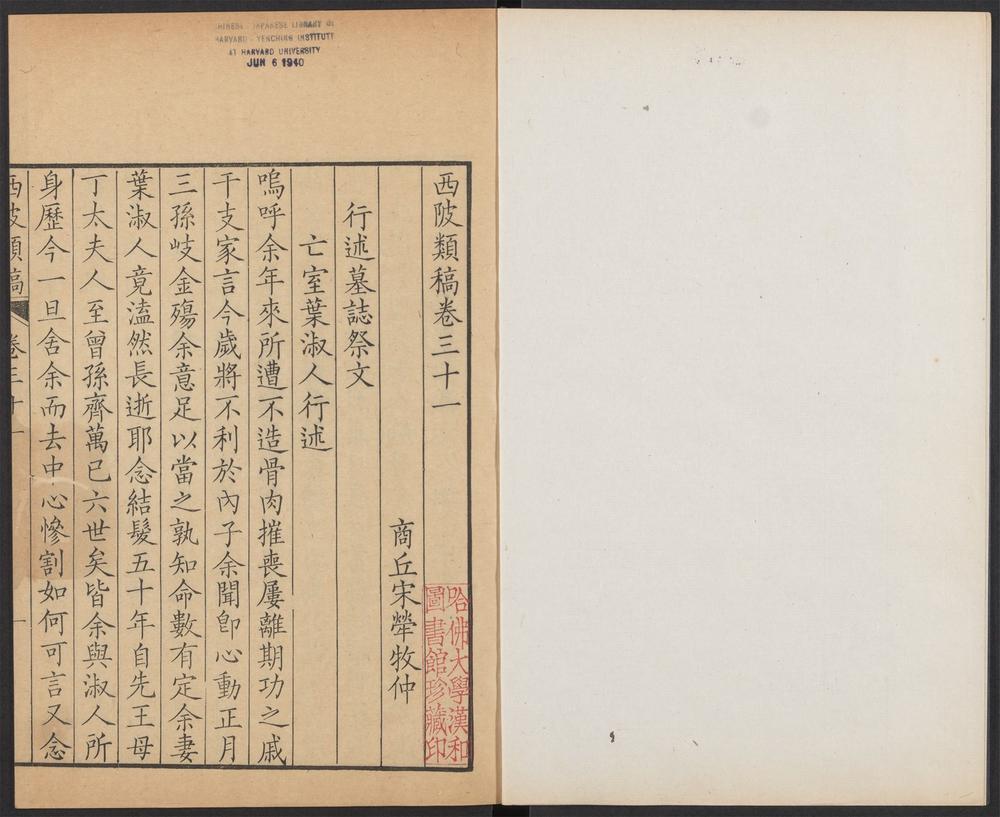 CHINESE - JAPANESE LIBRARY OF
HARVARD - YENCHING INSTITUTE
AT HARVARD UNIVERSITY
JUN 6 1940
西陂類稿卷三十一
商丘宋犖牧仲
行述墓誌祭文
亡室葉淑人行述
嗚呼余年來所遭不造骨肉摧喪屢離期功之戚
干支家言今歲將不利於內子余聞卽心動正月
三孫岐金殤余意足以當之孰知命數有定余妻
葉淑人竟溘然長逝耶念結髮五十年自先王母
丁太夫人至曾孫齊萬已六世矣皆余與淑人所
身歷今一旦舍余而去中心慘割如何可言又念
西陂類稿 卷三十一 一
哈佛大學漢和
圖書館珍藏印